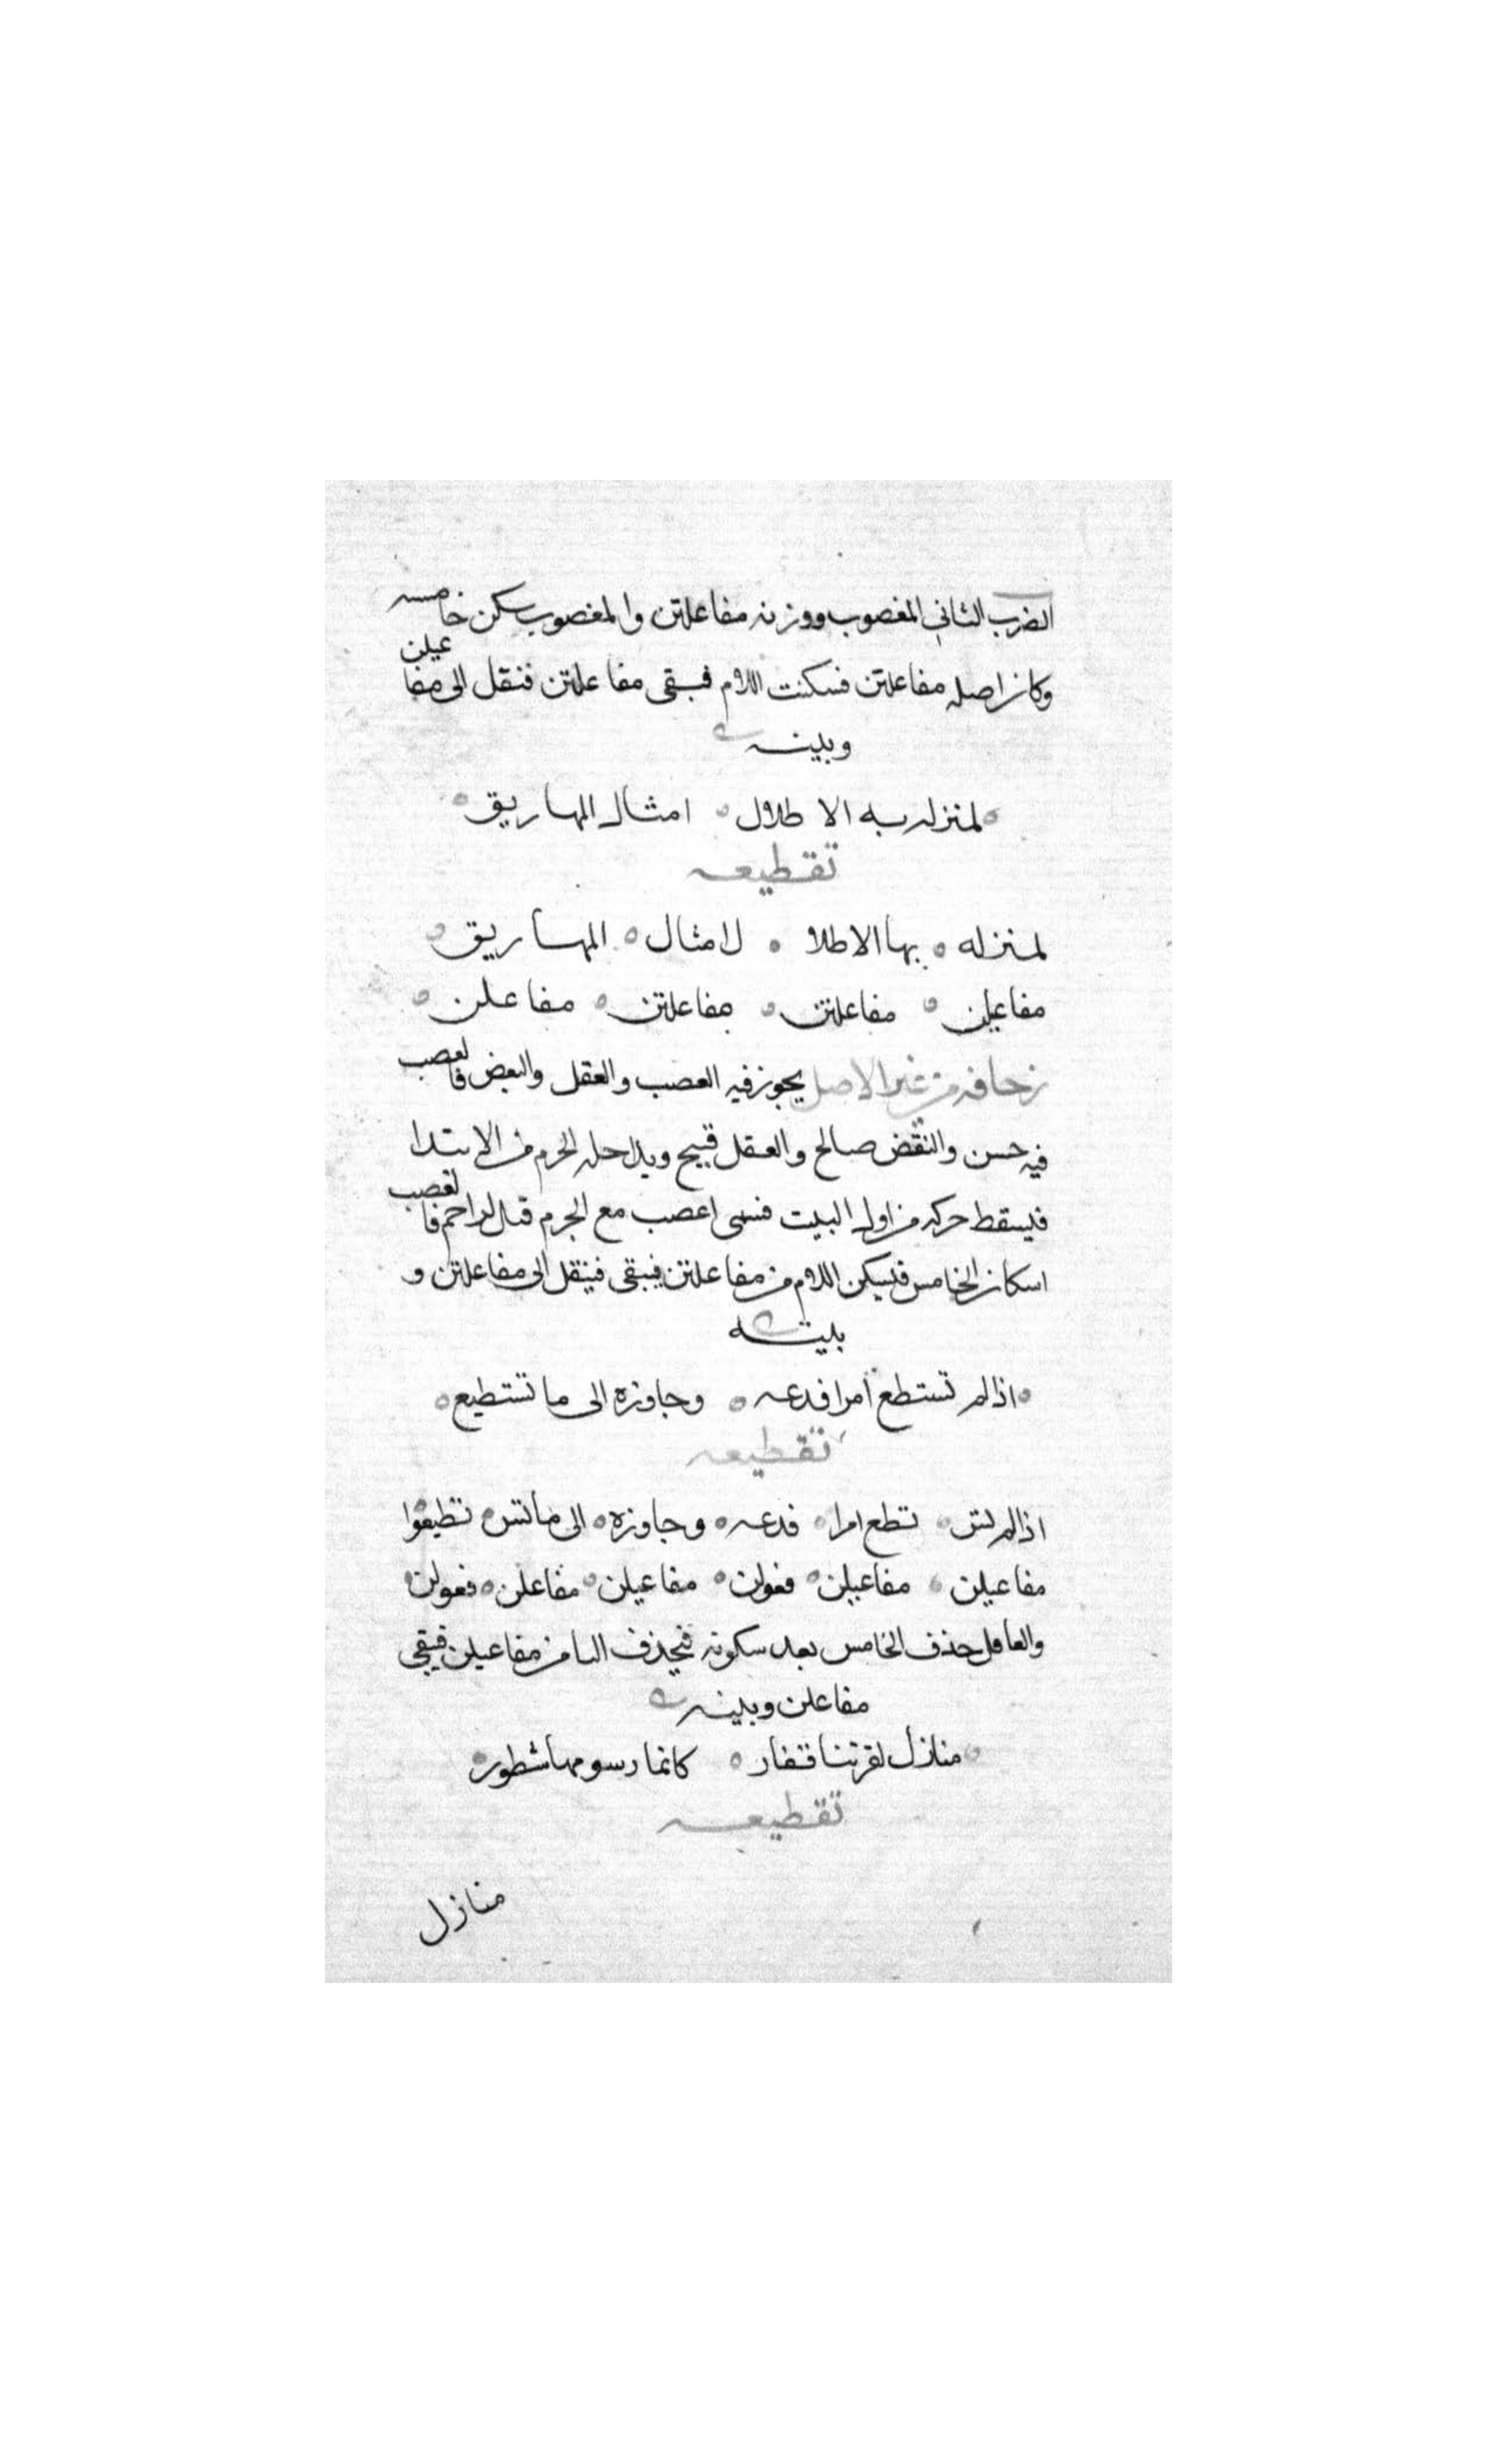 الضرب الثاني المغصوب ووزنه مفاعلتن والمغصوب سكن خامسه
وكان اصله مفاعلتن فسكنت اللام فبقى مفاعلتن فنقل الى مفاعيلن
وبيته
لمنزله به الاطلال امثال المهاريق
تقطيعه
لمنزله بها الاطلا لامثال المهاريق
مفاعيلن مفاعلتن مفاعلتن مفاعلن
زحافه من غير الاصل يجوز فيه العصب والعقل والنقض فالعصب
فيه حسن والنقض صالح والعقل قبيح ويداخله الخرم في الابتدا
فيسقط حركه من اول البيت فسمى اعصب مع الجرم قال فالعصب
اسكان الخامس فليسكن اللام من مفاعلتن فيبقى فينقل الى مفاعلتن و
بيته
اذا لم تستطع امرا فدعه وجاوزه الى ما تستطيع
تقطيعه
اذا لم تس تطع امرا فدعه وجاوزه الى ما تس تطيعوا
مفاعيلن مفاعيلن فعولن مفاعيلن مفاعلن فعولن
والعاقل حذف الخامس بعد سكونه فيحذف اليا من مفاعيلن فيبقى
مفاعلن وبيته
منازل لفرتنا قفار كانما رسومها شطور
تقطيعه
منازل